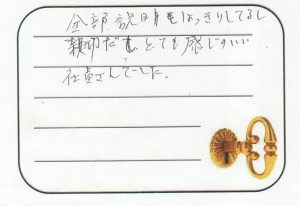 全部説明もはっきりしてるし
親切だし とても感じのいい
社員さんでした.